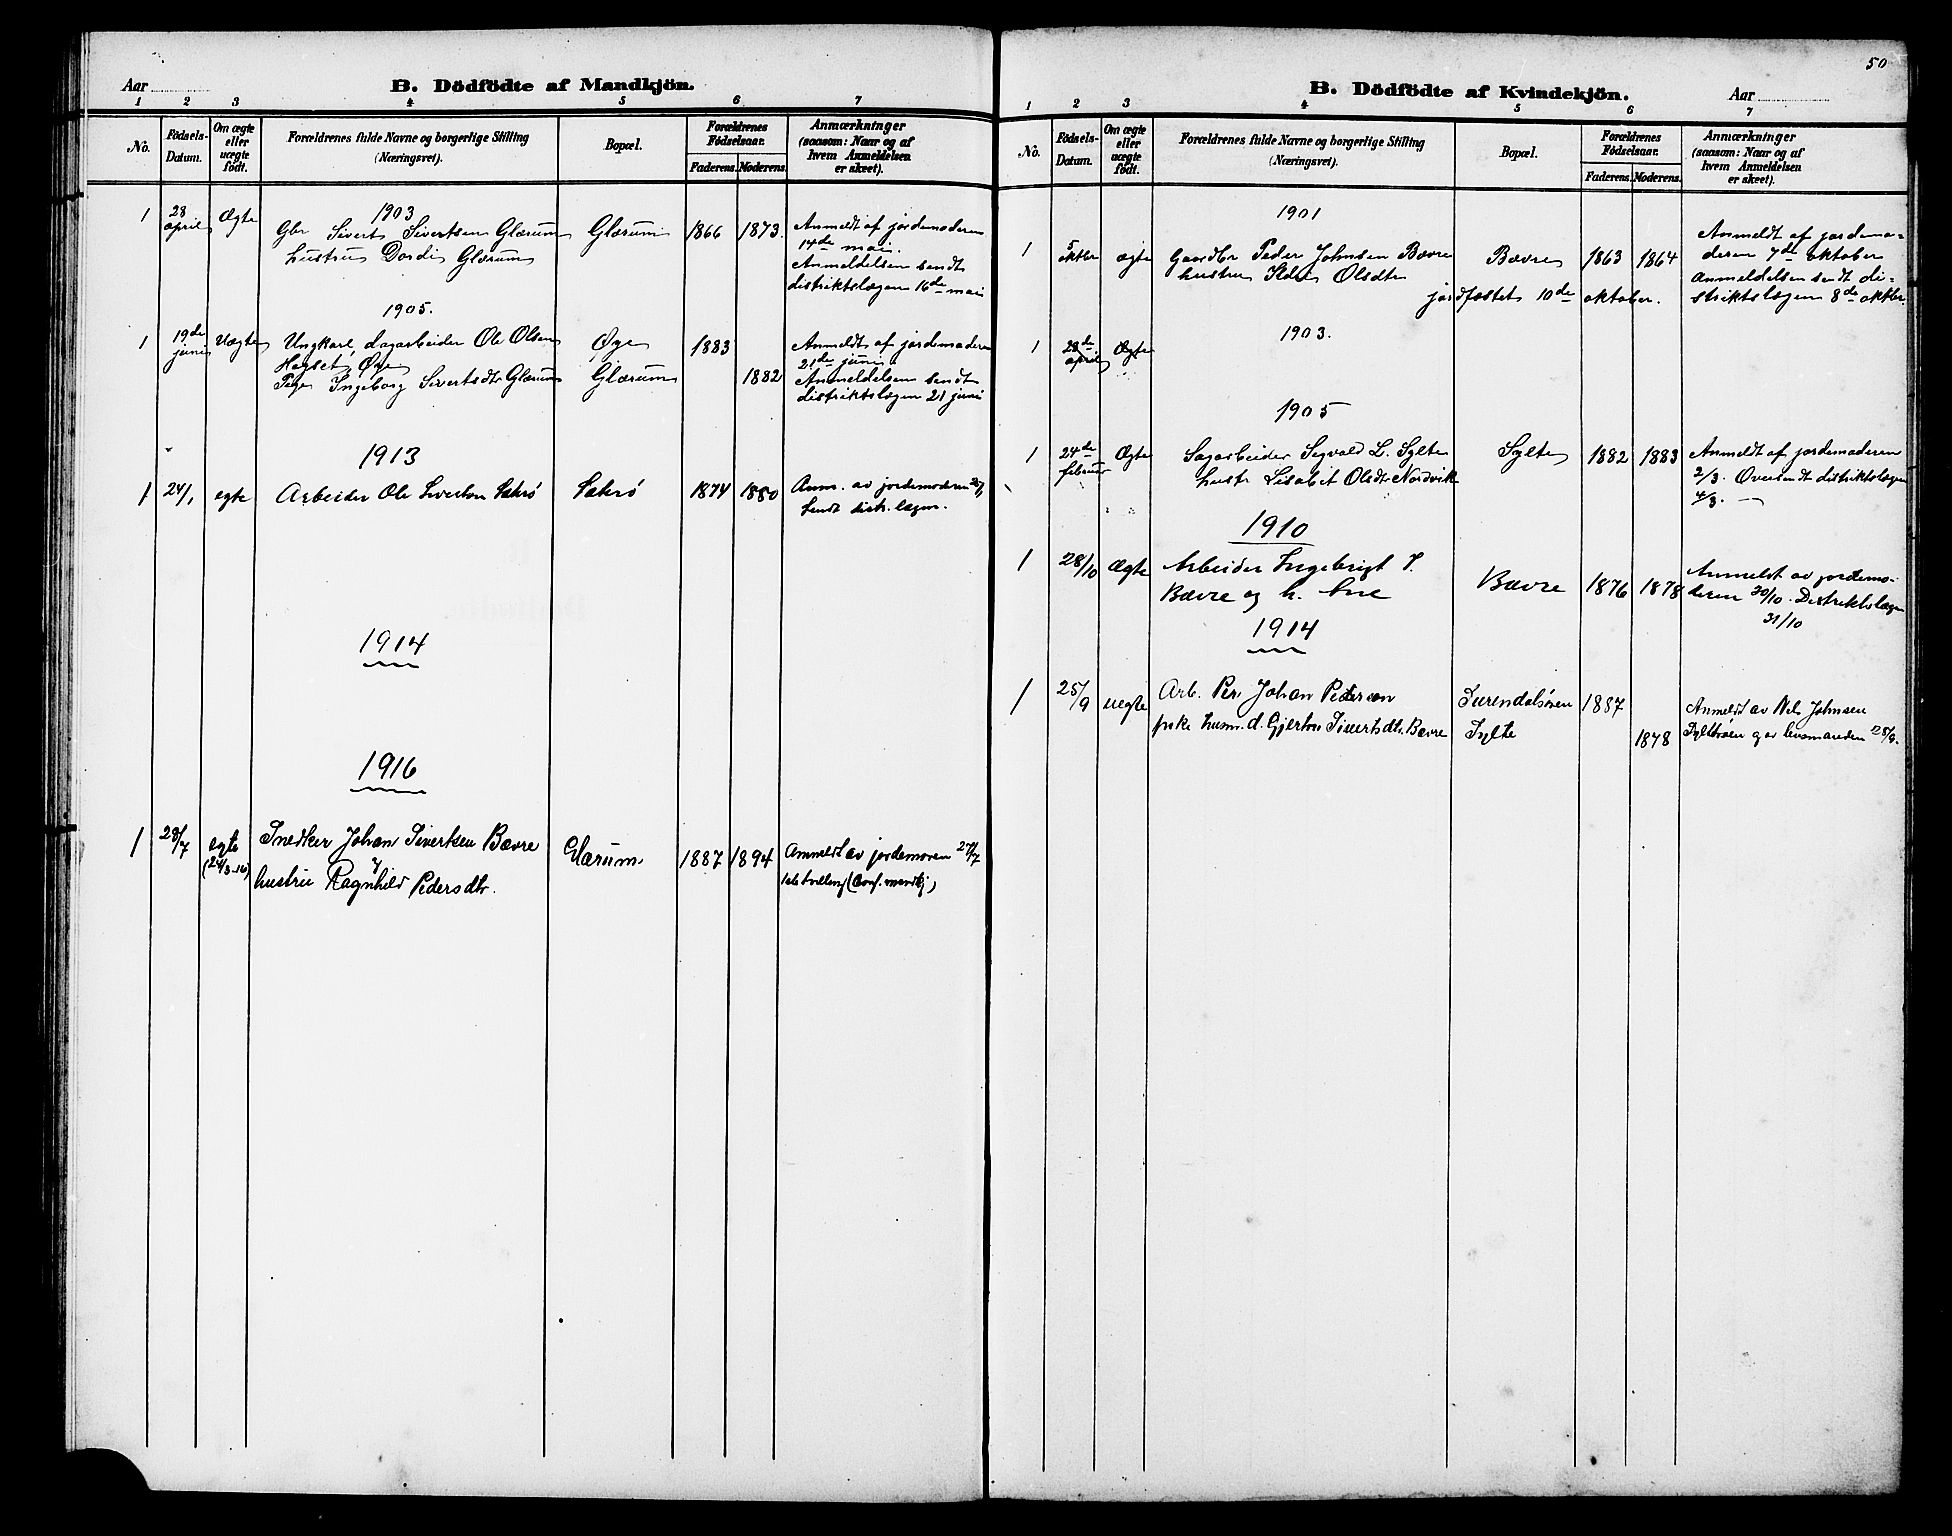 Aar
B. Dödfödte af Mandkjön.
1 2 3 4 5 6 7
No.
Födsels-
Datum.
Om ægte
eller
uægte
födt.
Forældrenes fulde Navne og borgerlige Stilling
(Næringsvei).
Bopæl.
Forældrenes
Födselsaar.
Faderens. Moderens.
Anmærkninger
(saasom: Naar og af
hvem Anmeldelsen
er skeet).
1903
1 28 april Ægte Gbr Sivert Sivertsen Glærum Glærum 1866 1873.
hustru Dordi Glærum
Anmeldt af jordemoderen
14de mai.
Anmeldelsen sendt
distriktslægen 16de mai
1905.
1 19de juni Uægte Ungkarl, dagarbeider Ole Olsen Øye 1883
Øye
Pige Ingeborg Sivertsdtr Glærum Glærum 1882
Anmeldt af jordemoderen
21de juni
Anmeldelsen sendt
distriktslægen 21 juni
1913
1 24/1 egte Arbeider Ole Sæterbø Sæterbø 1874 1880
Anm. av jordemoderen
Sendt distr.lægen.
1914
1916
1 28/7 egte Snedker Johan Sivertsen Bævre Glærum 1887 1894
(24/3-16)
hustru Ragnhild Pedersdtr.
Anmeldt av jordemoren 29/7
1ste tvilling (Conf. mandkj)
50
B. Dödfödte af Kvindekjön.
Aar
1 2 3 4 5 6 7
No.
Födsels-
Datum.
Om ægte
eller
uægte
födt.
Forældrenes fulde Navne og borgerlige Stilling
(Næringsvei).
Bopæl.
Forældrenes
Födselsaar.
Faderens. Moderens.
Anmærkninger
(saasom: Naar og af
hvem Anmeldelsen
er skeet).
1901
1 5 oktbr ægte Gaardbr Peder Johnsen Bævre Bævre 1863 1864
hustru Ildri Olsdtr
jordfæstet 10de oktober.
Anmeldt af jordemo-
deren 7de oktober
Anmeldelsen sendt di-
striktslægen 8de oktbr
1903.
1 28de april Ægte
1905
1 24de februar Ægte Sagarbeider Sigvald L. Sylte Sylte 1882 1883
hustr Lisabet Olsdtr Nordvik
Anmeldt af jordemoderen
2/3. Oversendt distriktslægen
4/3. —
1910
1 28/10 Ægte Arbeider Ingebrigt I. Bævre 1876 1878
Bævre og h. Ane
Anmeldt av jordemo-
deren 30/10. Distriktslægen
31/10
1914
1 25/9 uegte Arb. Per Johan Pedersen Surendalsøren 1887
pike husm.d. Gjertru Sivertsdtr. Bævre Sylte 1878
Anmeldt av Nil Johnsen
Sylteøien og av lensmanden 25/9.